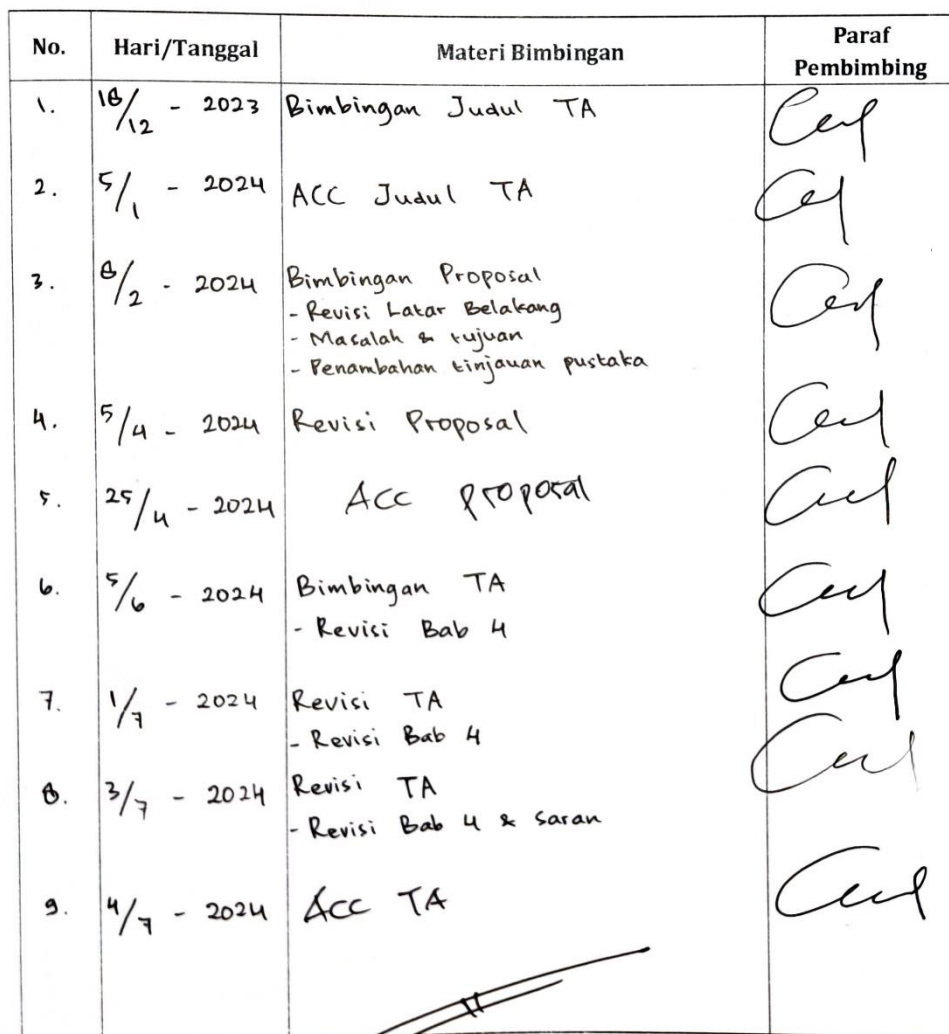 No. Hari/Tanggal Materi Bimbingan Paraf Pembimbing
1. 18/12 - 2023 Bimbingan Judul TA
2. 5/1 - 2024 ACC Judul TA
3. 8/2 - 2024 Bimbingan Proposal
- Revisi Latar Belakang
- Masalah & tujuan
- Penambahan tinjauan pustaka
4. 5/4 - 2024 Revisi Proposal
5. 25/4 - 2024 ACC proposal
6. 5/6 - 2024 Bimbingan TA
- Revisi Bab 4
7. 1/7 - 2024 Revisi TA
- Revisi Bab 4
8. 3/7 - 2024 Revisi TA
- Revisi Bab 4 & saran
9. 4/7 - 2024 ACC TA